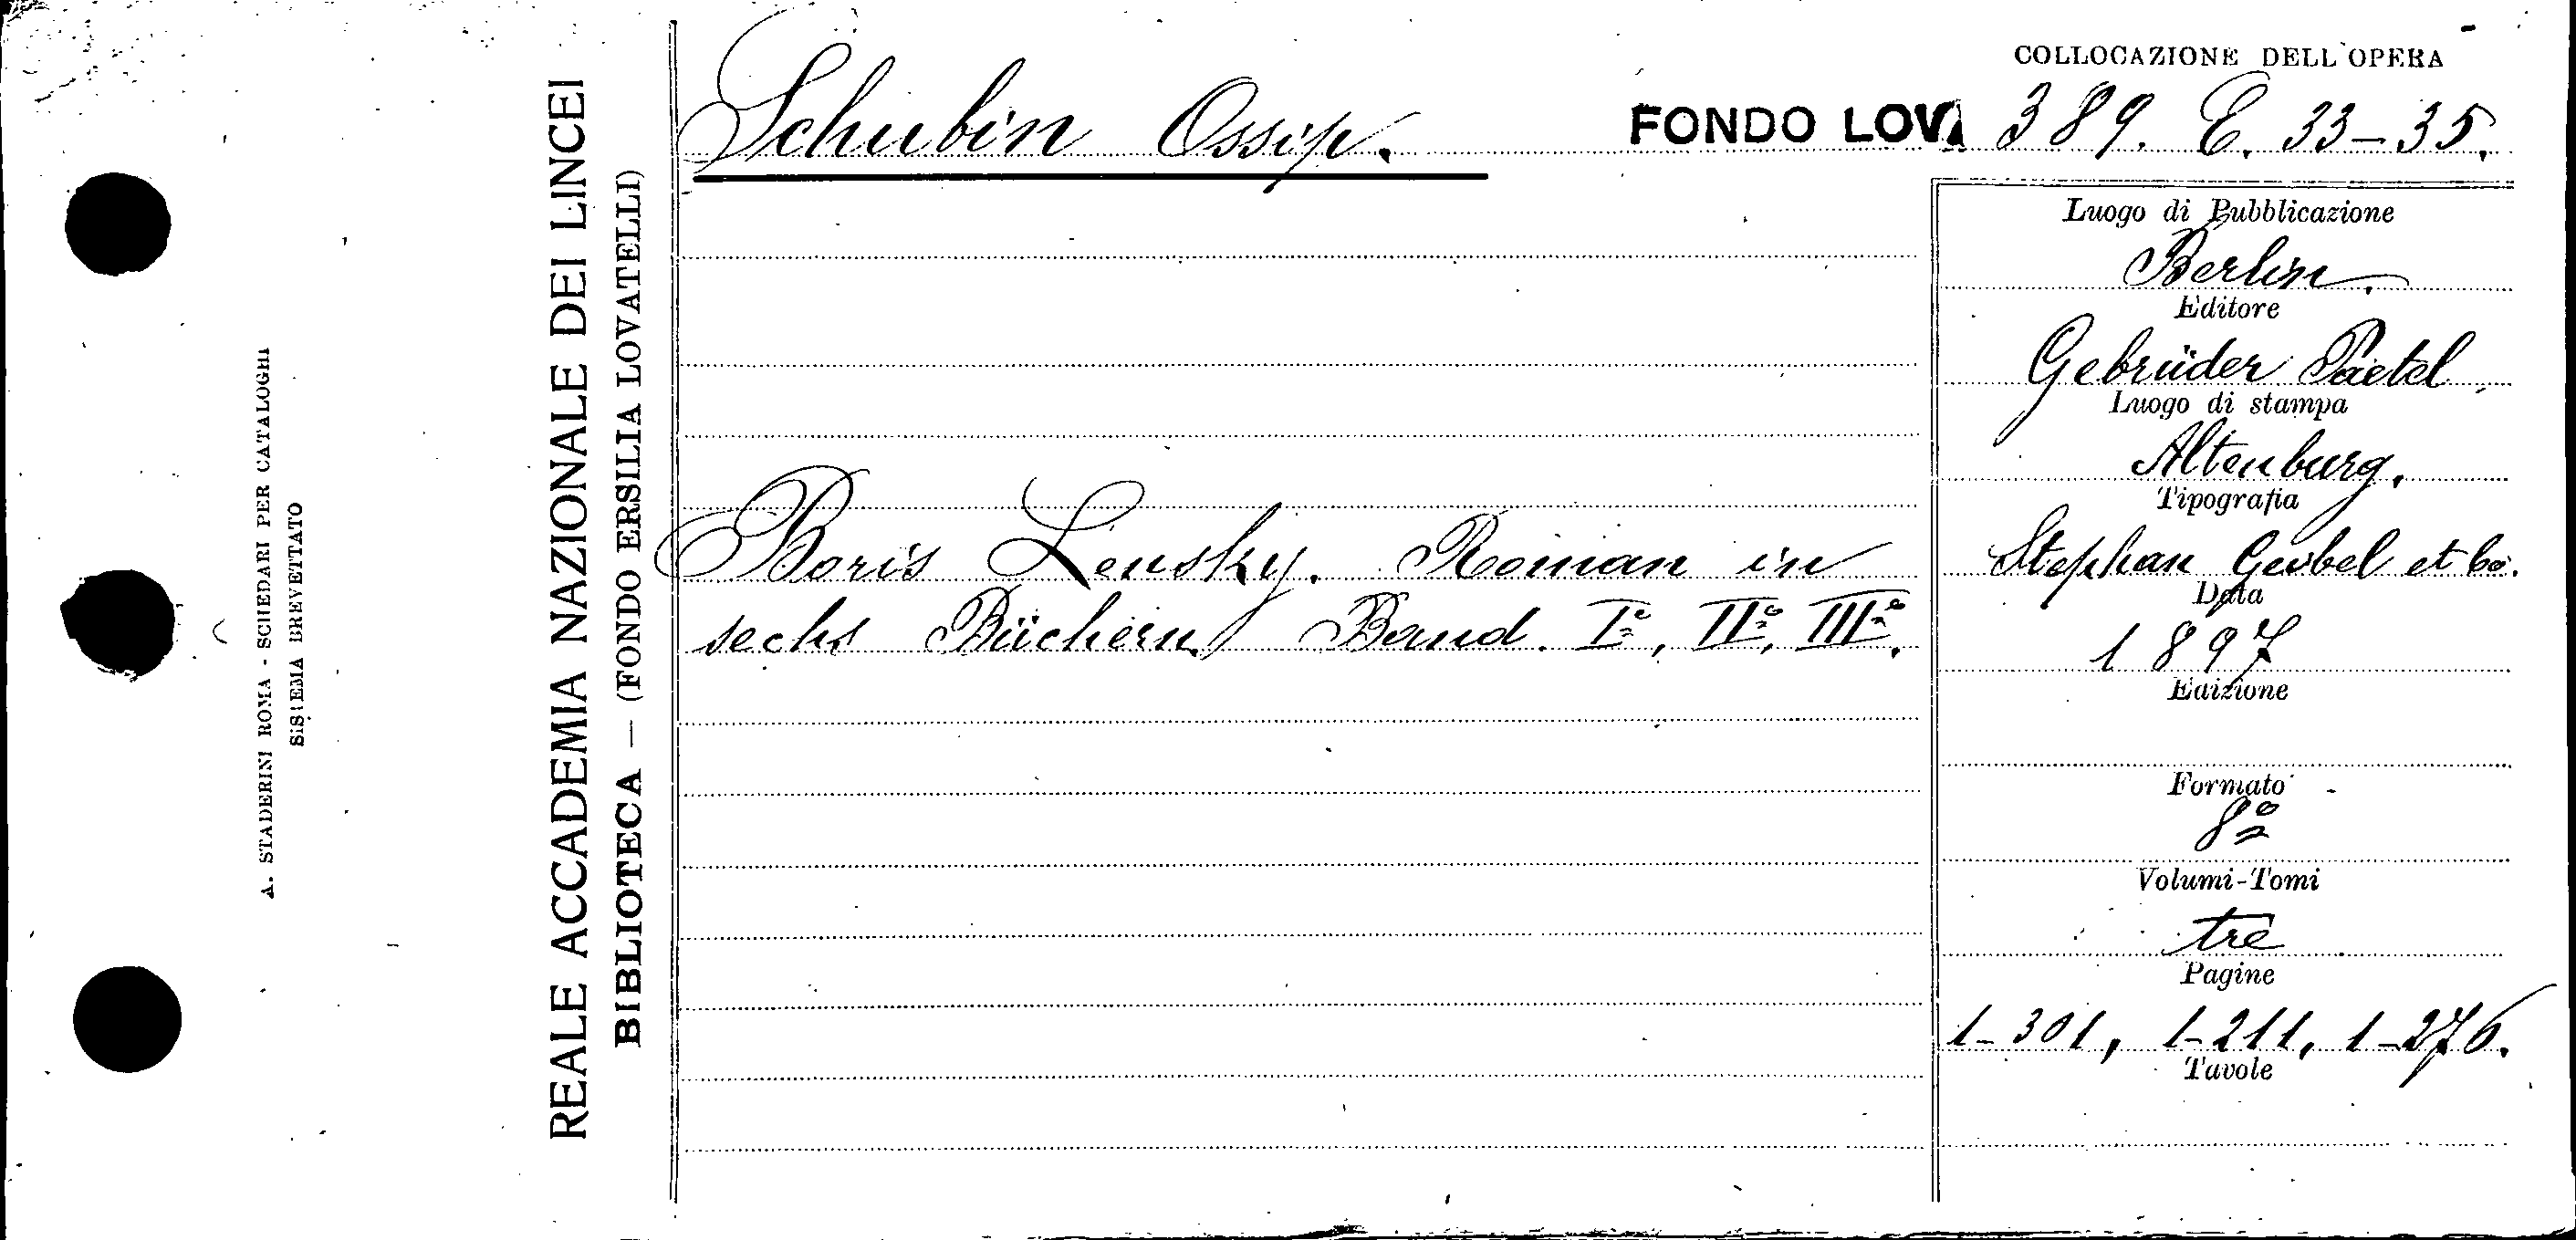 COLLOCAZIONE DELL'OPERA
Schubin Ossip.
FONDO LOV. 389. E. 33-35.
Luogo di Pubblicazione
Berlin.
Editore
Gebrüder Paetel
Luogo di stampa
Altenburg.
Tipografia
Stephan Geibel et Co.
Data
1897
Edizione
Formato
8º
Volumi-Tomi
tre
Pagine
1-301, 1-211, 1-276.
Tavole
Boris Lensky. Roman in
sechs Büchern. Band. Iº, IIº, IIIº.
REALE ACCADEMIA NAZIONALE DEI LINCEI
BIBLIOTECA — (FONDO ERSILIA LOVATELLI)
A. STADERINI ROMA - SCHEDARI PER CATALOGHI
SISTEMA BREVETTATO